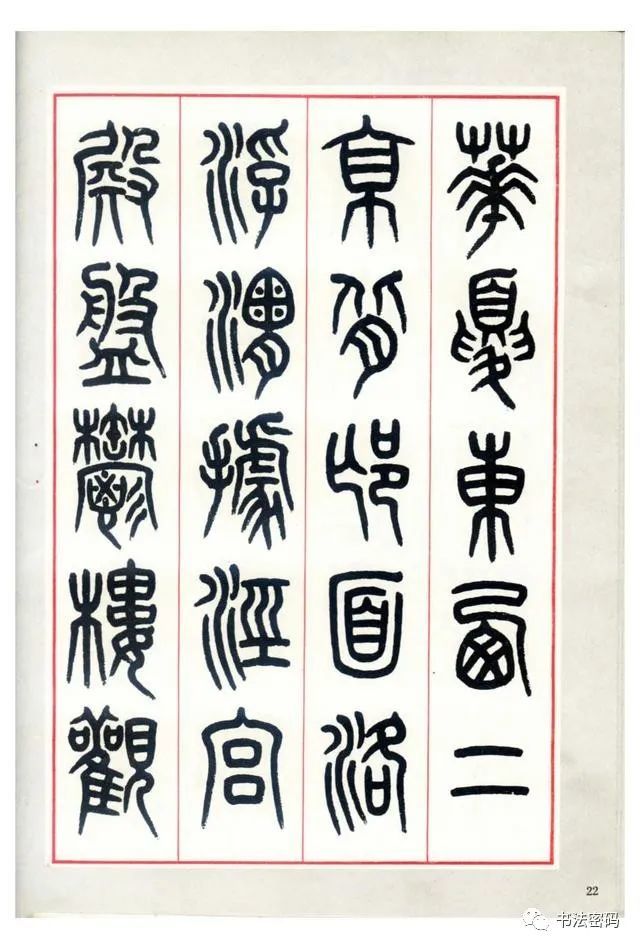 華夏東西二
京背邙面洛
浮渭據涇宮
殿盤鬱樓觀
22
书法密码